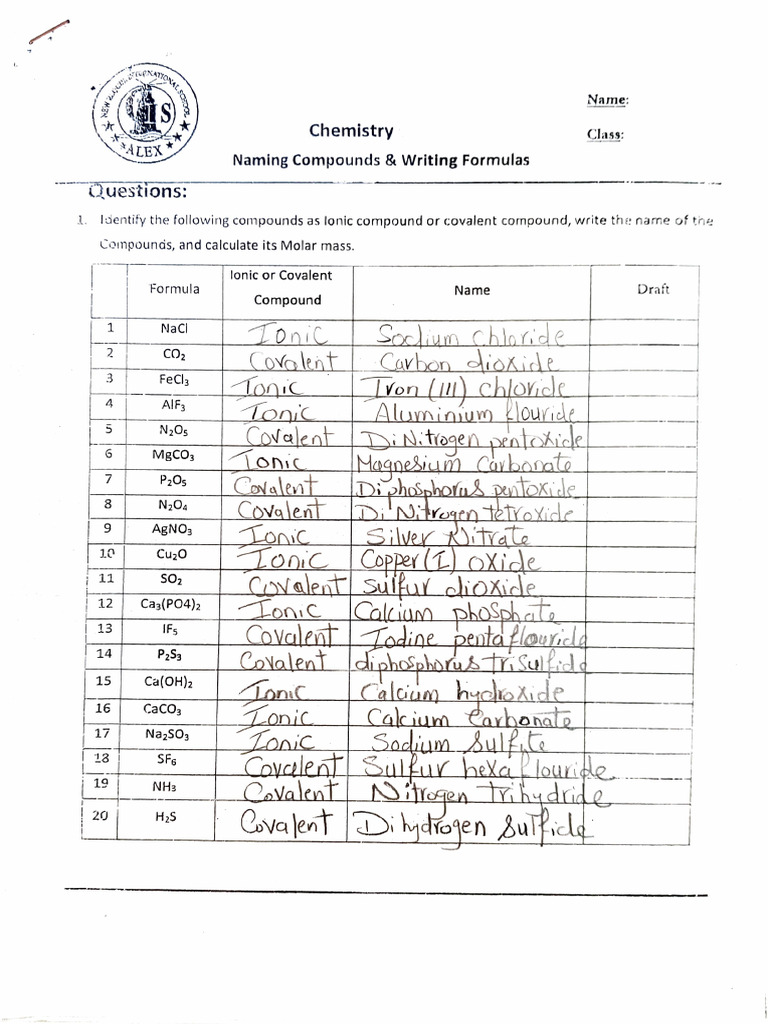 NEW INTERNATIONAL SCHOOL
IS
ALEX
Name:
Chemistry
Class:
Naming Compounds & Writing Formulas
Questions:
1. Identify the following compounds as Ionic compound or covalent compound, write the name of the
Compounds, and calculate its Molar mass.
Formula Ionic or Covalent Compound Name Draft
1 NaCl Ionic Sodium chloride
2 CO₂ Covalent Carbon dioxide
3 FeCl₃ Ionic Iron (III) chloride
4 AlF₃ Ionic Aluminium flouride
5 N₂O₅ Covalent DiNitrogen pentoxide
6 MgCO₃ Ionic Magnesium Carbonate
7 P₂O₅ Covalent Diphosphorus pentoxide
8 N₂O₄ Covalent Di Nitrogen tetroxide
9 AgNO₃ Ionic Silver Nitrate
10 Cu₂O Ionic Copper (I) oxide
11 SO₂ Covalent Sulfur dioxide
12 Ca₃(PO4)₂ Ionic Calcium phosphate
13 IF₅ Covalent Iodine penta flouride
14 P₂S₃ Covalent diphosphorus trisulfide
15 Ca(OH)₂ Ionic Calcium hydroxide
16 CaCO₃ Ionic Calcium Carbonate
17 Na₂SO₃ Ionic Sodium Sulfite
18 SF₆ Covalent Sulfur hexa flouride
19 NH₃ Covalent Nitrogen Trihydride
20 H₂S Covalent Dihydrogen Sulfide